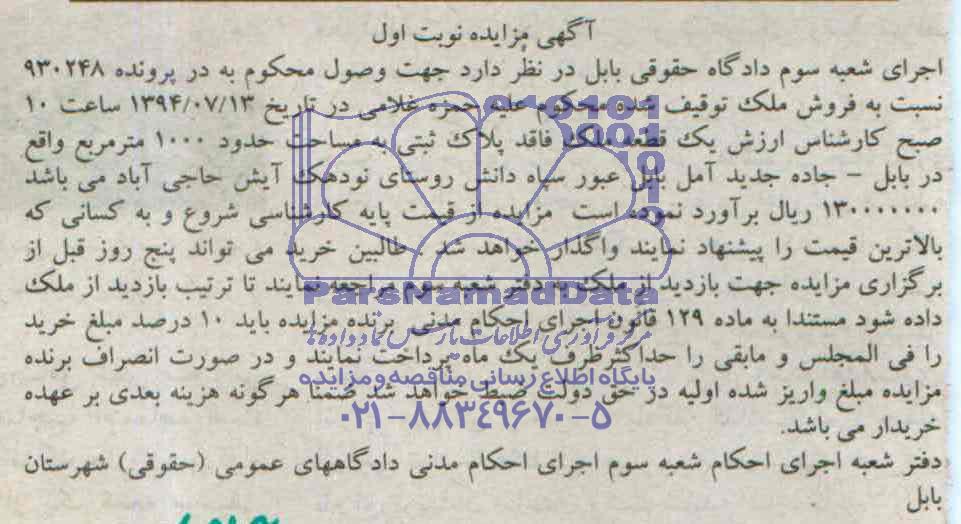 آگهی مزایده نوبت اول
اجرای شعبه سوم دادگاه حقوقی بابل در نظر دارد جهت وصول محکوم به در پرونده ۹۳۰۲۴۸
نسبت به فروش ملک توقیف شده محکوم علیه حمزه غلامی در تاریخ ۱۳۹۴/۰۷/۱۳ ساعت ۱۰
صبح کارشناس ارزش یک قطعه ملک فاقد پلاک ثبتی به مساحت حدود ۱۰۰۰ مترمربع واقع
در بابل - جاده جدید آمل بابل عبور سپاه دانش روستای نودهک آیش حاجی آباد می باشد
۱۳۰۰۰۰۰۰۰۰ ریال برآورد نموده است مزایده از قیمت پایه کارشناسی شروع و به کسانی که
بالاترین قیمت را پیشنهاد نمایند واگذار خواهد شد . طالبین خرید می تواند پنج روز قبل از
برگزاری مزایده جهت بازدید از ملک به دفتر شعبه سوم مراجعه نمایند تا ترتیب بازدید از ملک
داده شود مستندا به ماده ۱۲۹ قانون اجرای احکام مدنی برنده مزایده باید ۱۰ درصد مبلغ خرید
را فی المجلس و مابقی را حداکثرظرف یک ماه پرداخت نمایند و در صورت انصراف برنده
مزایده مبلغ واریز شده اولیه در حق دولت ضبط خواهد شد ضمنا هرگونه هزینه بعدی بر عهده
خریدار می باشد.
دفتر شعبه اجرای احکام شعبه سوم اجرای احکام مدنی دادگاههای عمومی (حقوقی) شهرستان
بابل
ParsNamadData
مرکز فرآوری اطلاعات پارس نماد داده ها
پایگاه اطلاع رسانی مناقصه و مزایده
۰۲۱-۸۸۳۴۹۶۷۰-۵